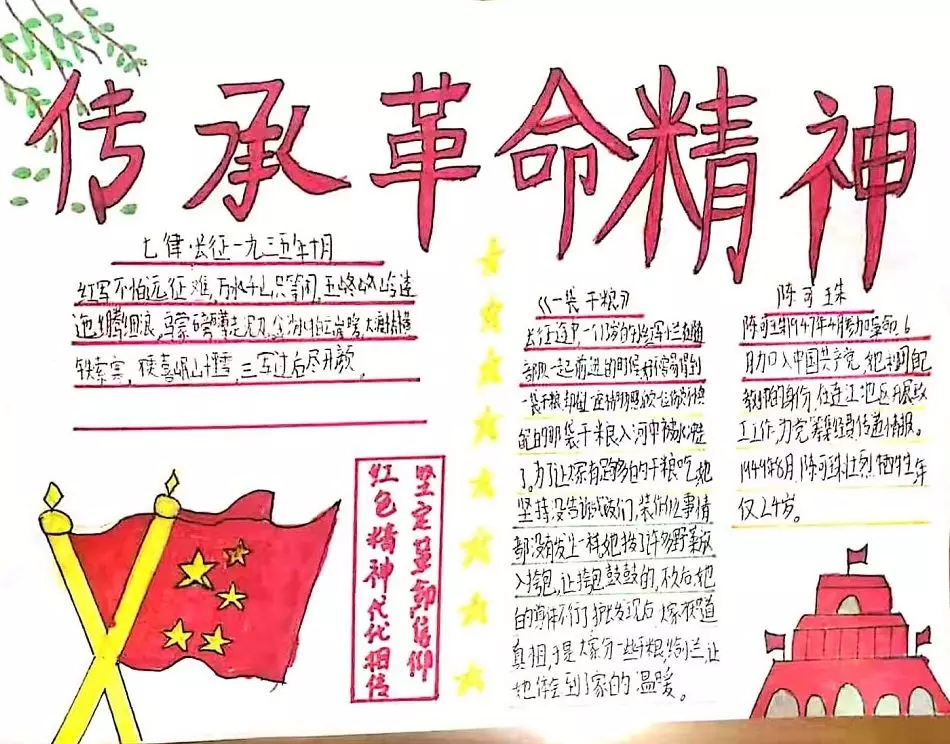 传承革命精神
七律·长征一九三五年十月
红军不怕远征难,万水千山只等闲,五岭逶
迤腾细浪,乌蒙磅礴走泥丸,金沙水拍云崖暖,大渡桥横
铁索寒,更喜岷山千里雪,三军过后尽开颜。
坚定革命信仰
红色精神代代相传
《一袋干粮》
长征途中,一个13岁的小红军小兰在跟
部队一起前进的时候,好不容易得到
一袋干粮,却在
的那袋干粮入河中被水冲走
了。为了让大家有足够的干粮吃,她
坚持没告诉战友们,装作什么事情
都没有发生一样,她拔了许多野菜放
入挎包,让挎包鼓鼓的,不久后,她
的身体不行了,护士发现后,大家知道
真相,于是大家分一些干粮,给小兰,让
她体会到了家的温暖。
陈可珠
陈可珠1947年4月参加革命,6
月加入中国共产党,她利用
教师的身份,在连江地区开展政
工工作,为党筹集经费传递情报。
1949年8月,陈可珠壮烈牺牲年
仅24岁。